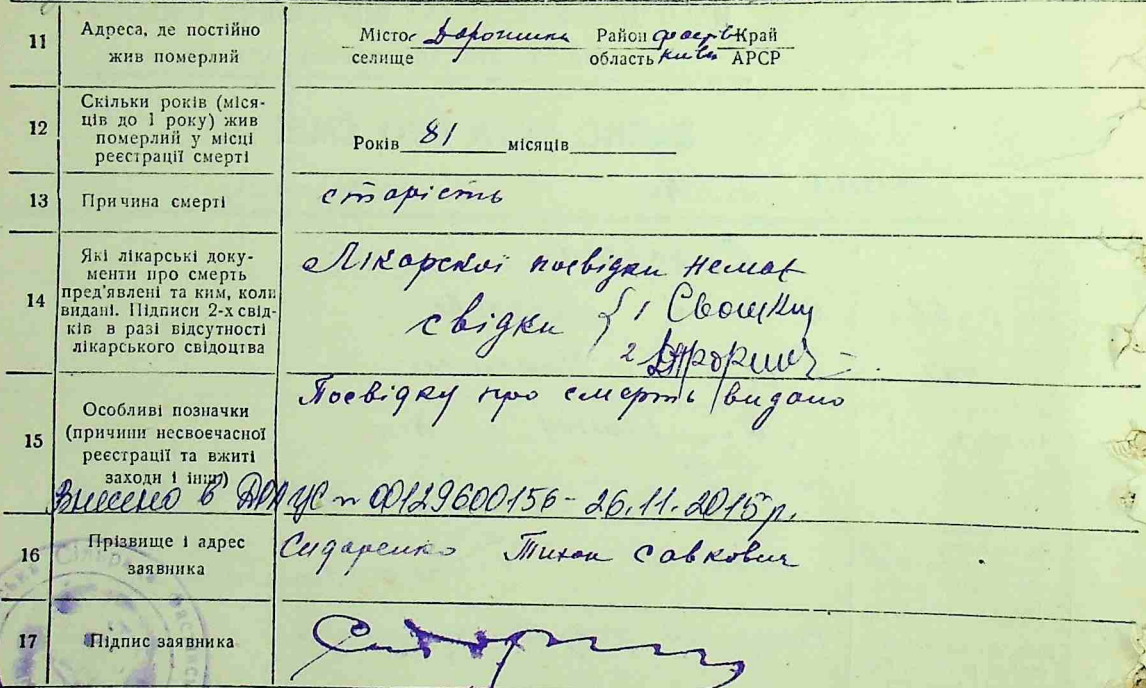 11
Адреса, де постійно
жив померлий
Місто с Дорогинка Район Фастів Край
селище область Київ АРСР
12
Скільки років (міся-
ців до 1 року) жив
померлий у місці
реєстрації смерті
Років 81 місяців
13
Причина смерті
старість
14
Які лікарські доку-
менти про смерть
пред'явлені та ким, коли
видані. Підписи 2-х свід-
ків в разі відсутності
лікарського свідоцтва
Лікарскої посвідки немає
свідки { 1
2
15
Особливі позначки
(причини несвоєчасної
реєстрації та вжиті
заходи і інші)
Посвідку про смерть видано
Внесено в ДРАЦС № 00129600156 - 26.11.2015 р.
16
Прізвище і адрес
заявника
Сидаренко Тихон Савкович
17
Підпис заявника